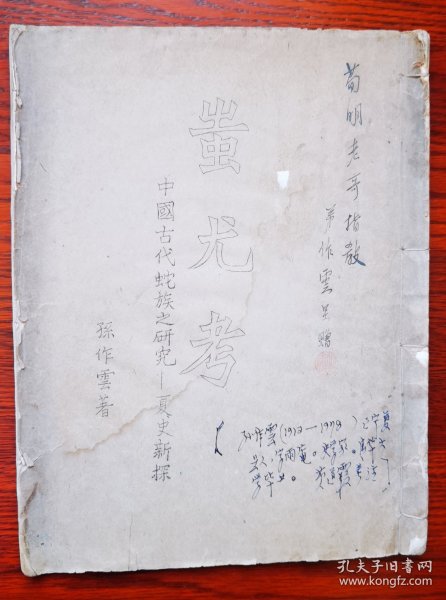 荀明老哥指教
弟作雲呈贈
蚩尤考
中國古代蛇族之研究—夏史新探
孫作雲著
孙作雲(1912—1978)辽宁
孔夫子旧书网
www.kongfz.com